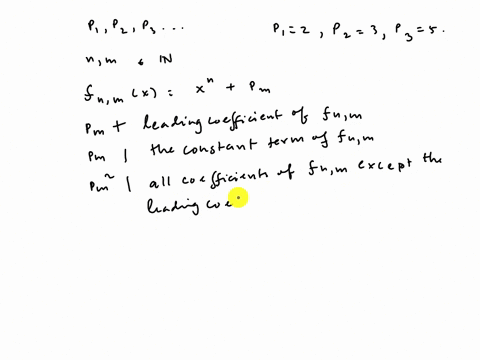 P₁, P₂, P₃ ... P₁ = 2, P₂ = 3, P₃ = 5.
n, m ∈ IN
f_{n,m}(x) = xⁿ + P_m
P_m ∤ leading coefficient of f_{n,m}
P_m | the constant term of f_{n,m}
P_m² | all coefficients of f_{n,m} except the
leading coe